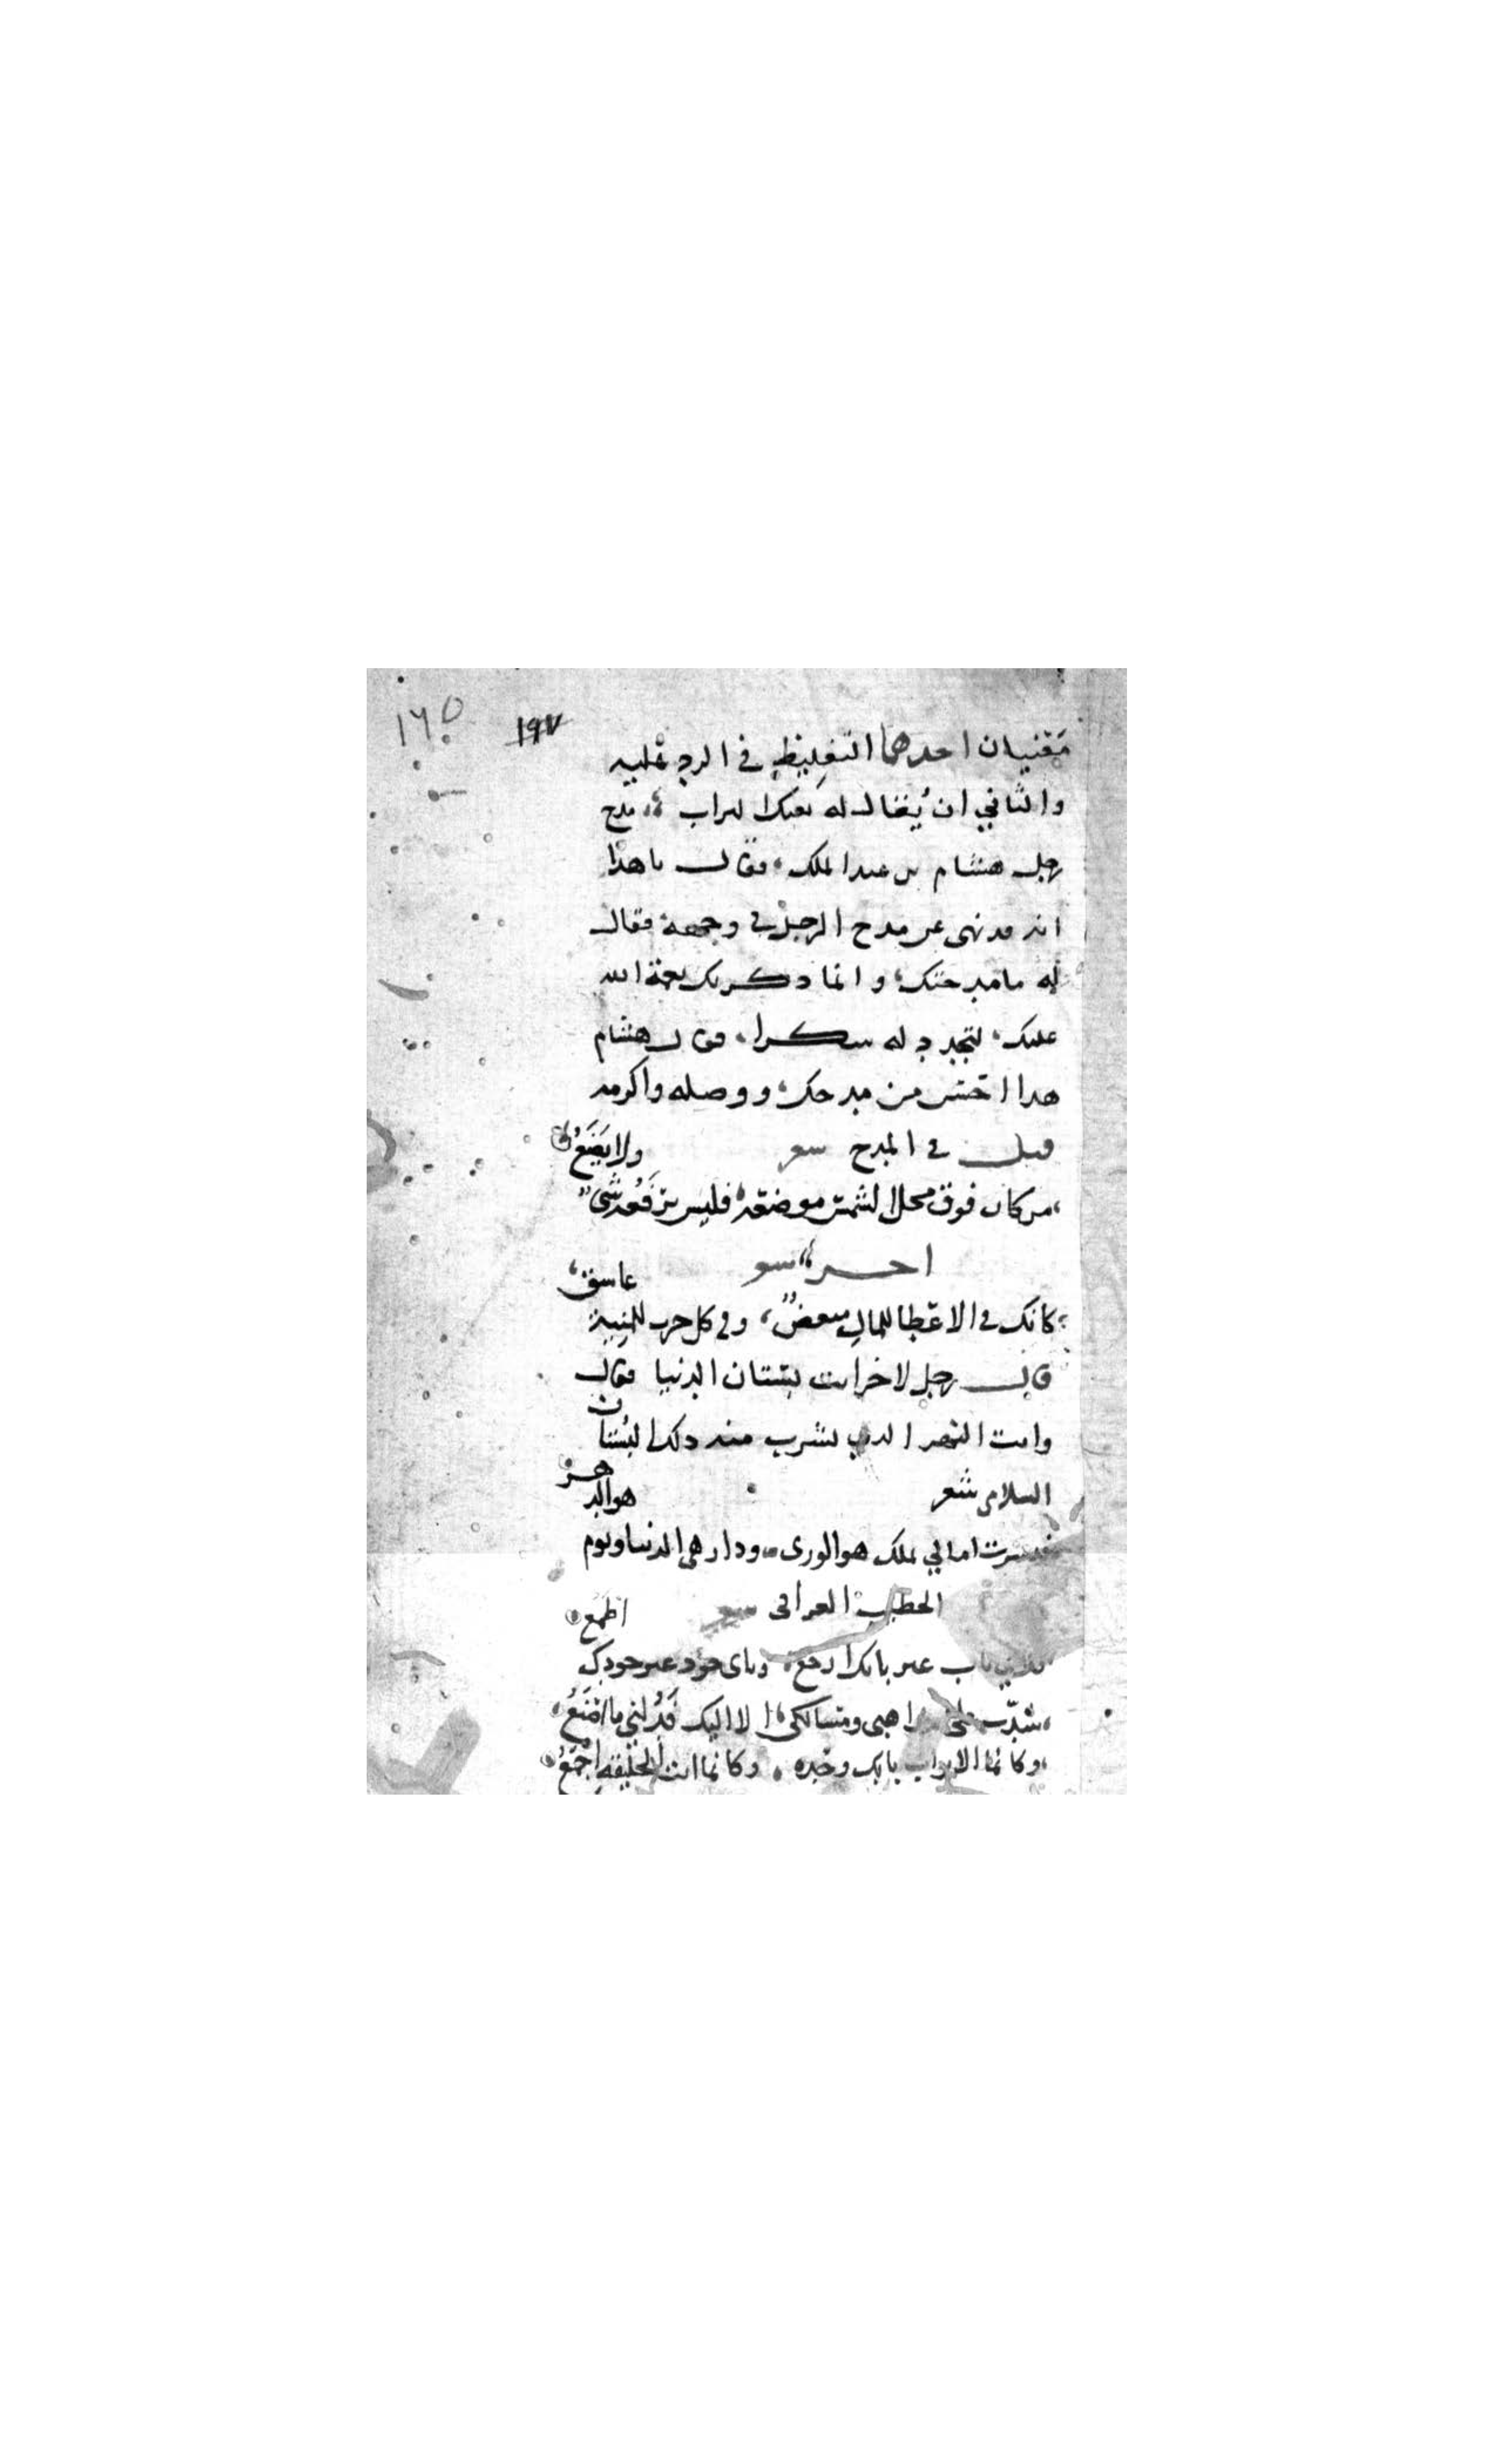 ١٦٥ ١٩٧
معنيان احدهما التغليظ في الرد عليه
والثاني ان يُقال له بفيك التراب مدح
رجل هشام بن عبد الملك فقال يا هذا
انه قد نهى عن مدح الرجل في وجهه فقال
له ما مدحتك وانما ذكرتك نعمة الله
عليك لتجدد له شكرا فقال هشام
هذا احسن من مدحك ووصله واكرمه
قيل في المدح شعر
من كان فوق محل الشمس موضعه فليس يرفعه شي ولا يضع
اخر شعر
كانك في الاعطا للمال مبغض وفي كل حرب للمنية عاشق
قال رجل لاخر انت بستان الدنيا فقال
وانت النهر الذي يشرب منه ذلك البستان
السلامي شعر
امالي بملك هو الورى ودار هي الدنيا ويوم هو الدهر
الخطيب العراقي شعر
باب غير بابك ارجع وباي جود غير جودك اطمع
سُدّت علي مذاهبي ومسالكي الا اليك فدُلني ما اصنع
وكانما الابواب بابك وحده وكانما انت الخليقة اجمع